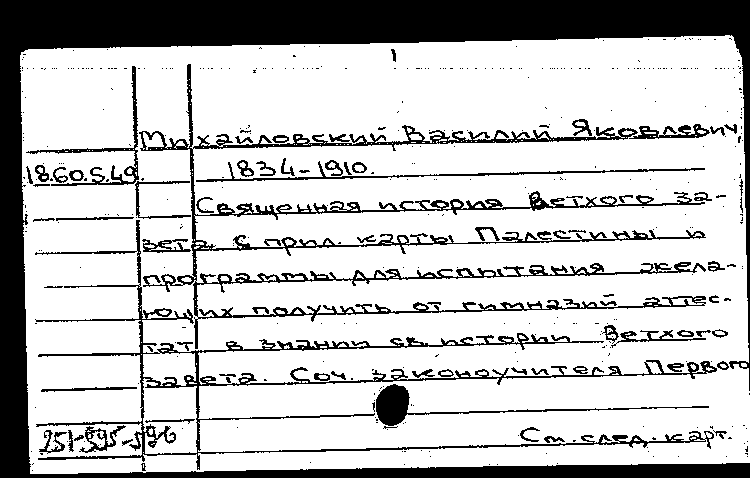 Михайловский, Василий Яковлевич,
18.60.5.49. 1834-1910.
Священная история Ветхого за-
вета. С прил. карты Палестины и
программы для испытания жела-
ющих получить от гимназий аттес-
тат в знании св. истории Ветхого
завета. Соч. законоучителя Первого
251-595-596 См. след. карт.